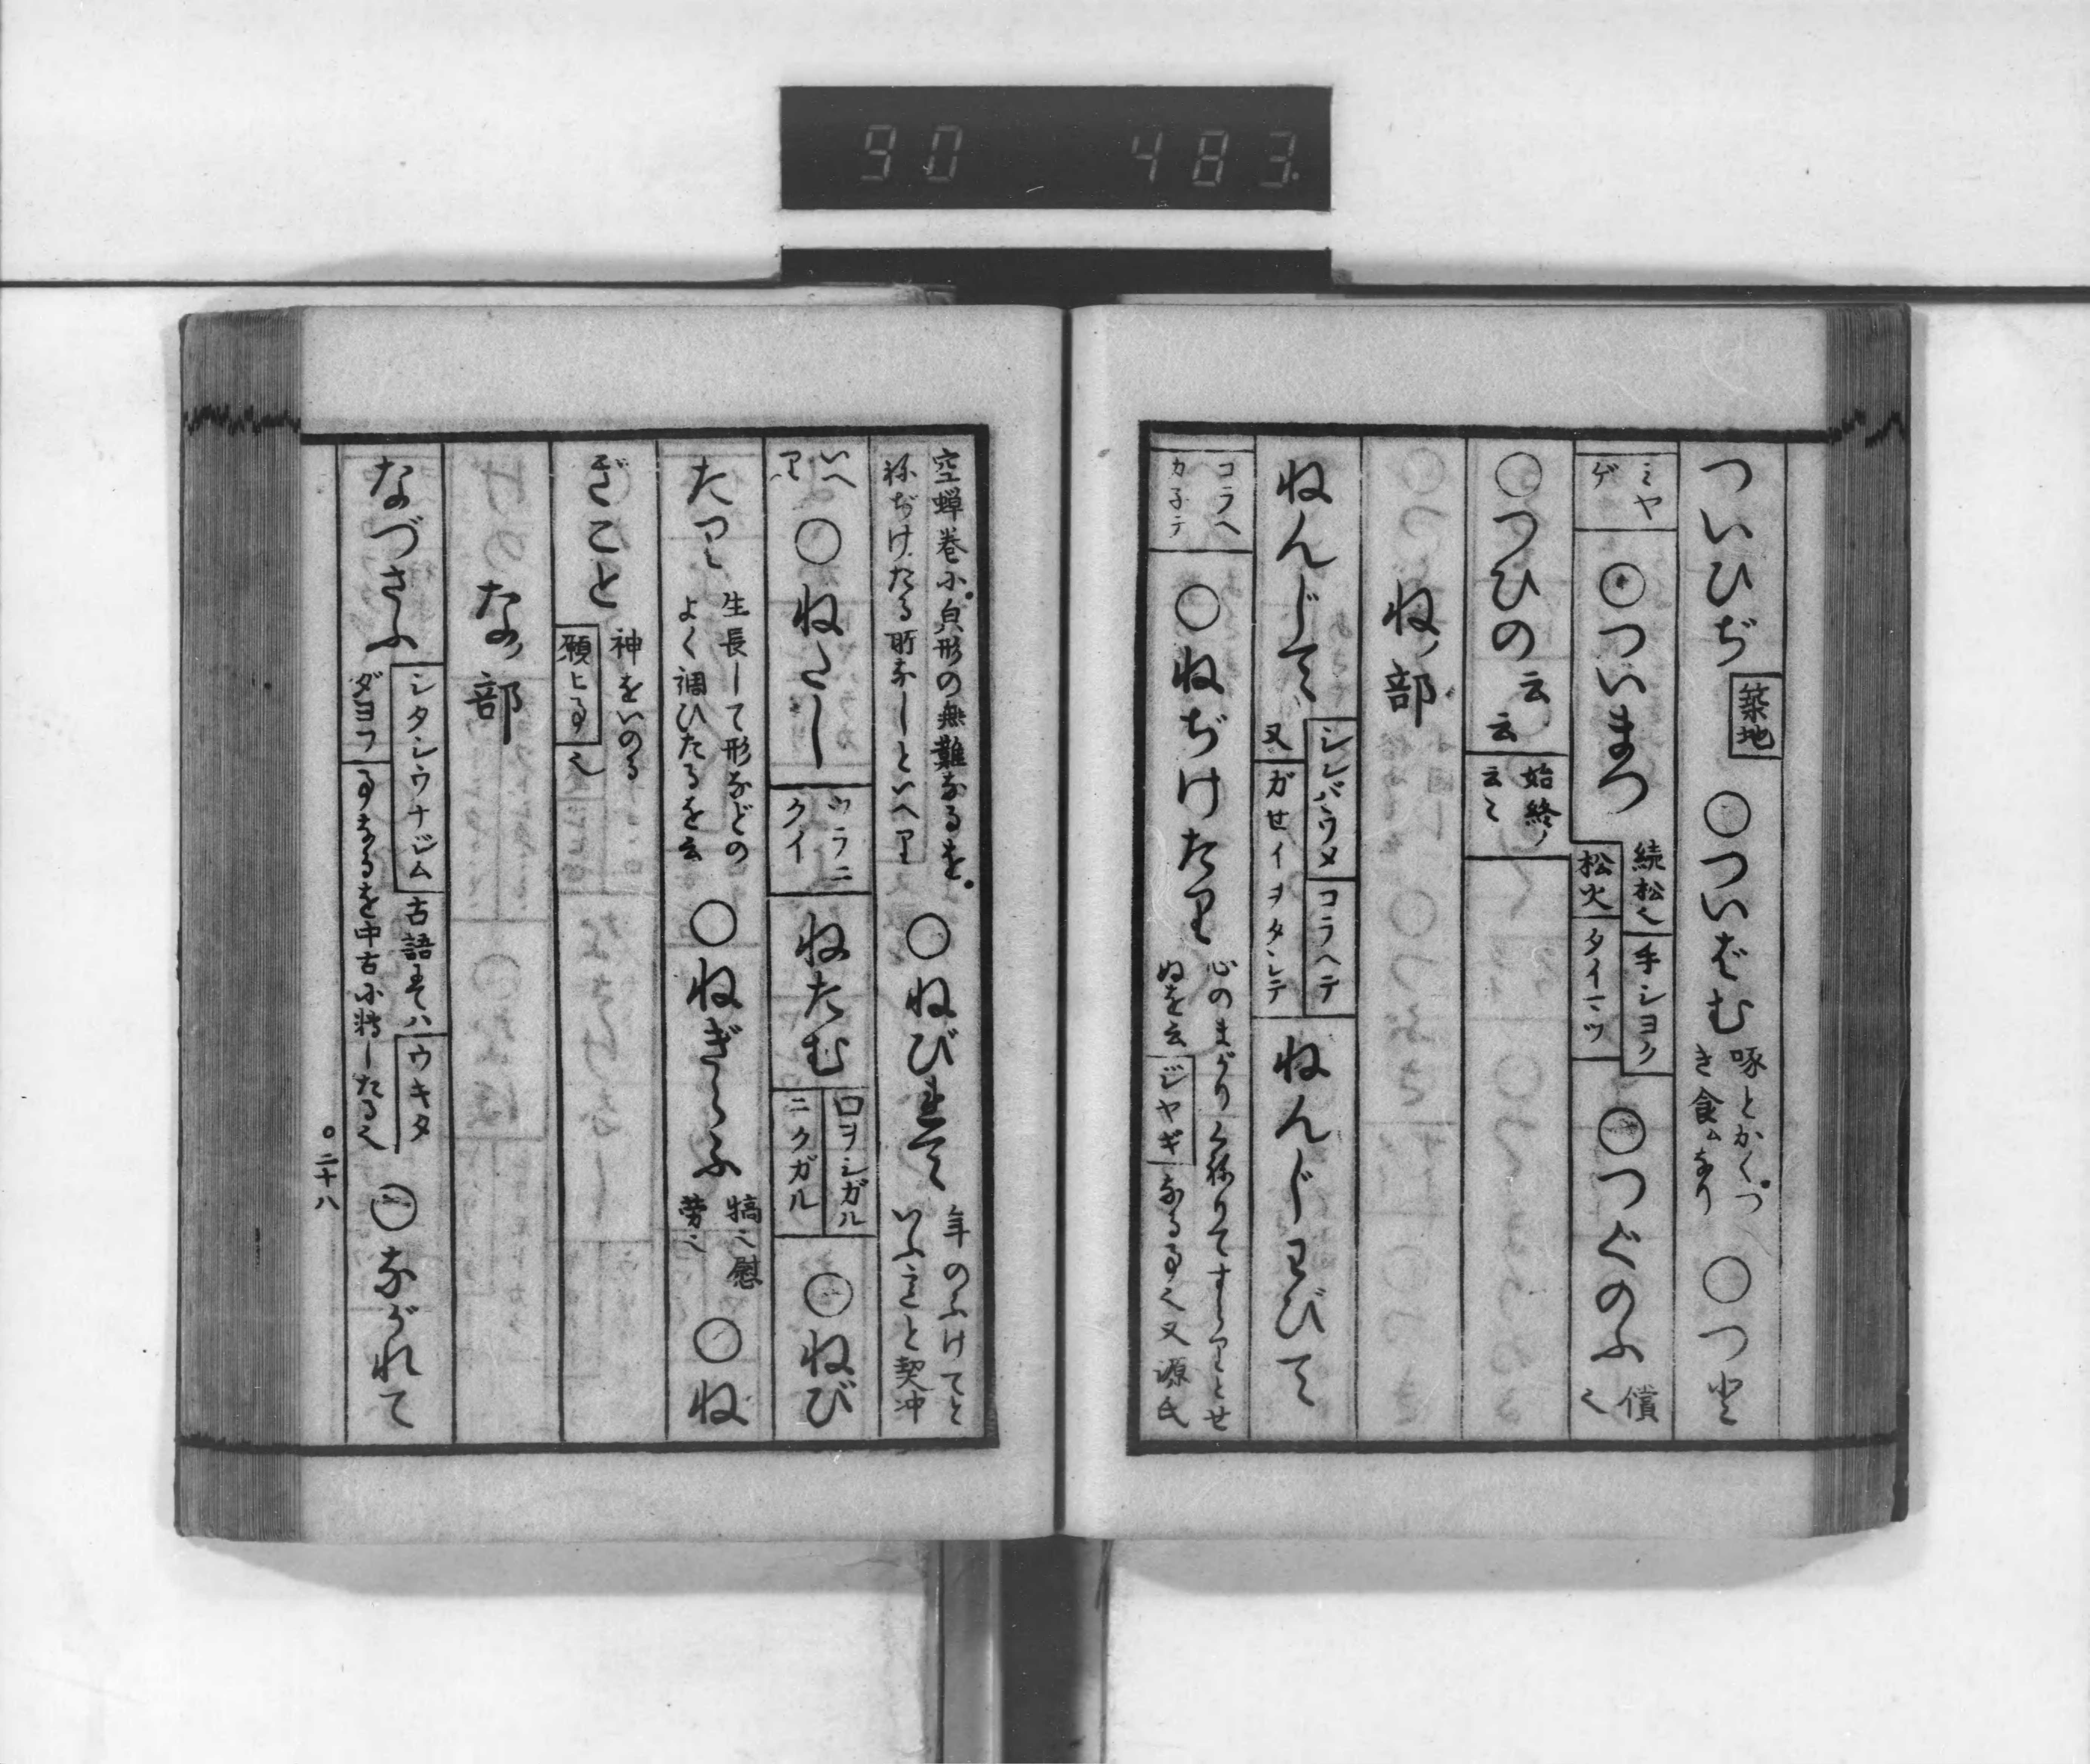 90 483.
ついひぢ 築地 ○ついばむ 啄とかく。つき食ムなり ○つと
ミヤゲ ○ついまつ 続松也 手シヨク 松火 タイマツ ○つぐのふ 償也
○つひの云云 始終ノ云々
ねノ部
ねんじて シンバウメ コラヘテ 又 ガセイヲタシテ ねんじわびて
コラヘカネテ ○ねぢけたり 心のまがりくねりてすらりとせぬを云 ジヤギなる事也 又源氏
空蝉巻に。貞形の無難なるを。ねぢけたる所なしといへり ○ねびれて 年のふけてといふ意と契冲
いへり ○ねたし ツラニクイ ねたむ 口ヲシガル ニクガル ○ねび
たつ 生長して形などのよく調ひたるを云 ○ねぎらふ 犒也 慰労也 ○ね
ぎこと 神をいのる 願ヒ事也
なノ部
なづさふ シタシウナジム 古語ニテハ ウキタダヨフ 事なるを中古に転したる也 ○ながれて
○二十八